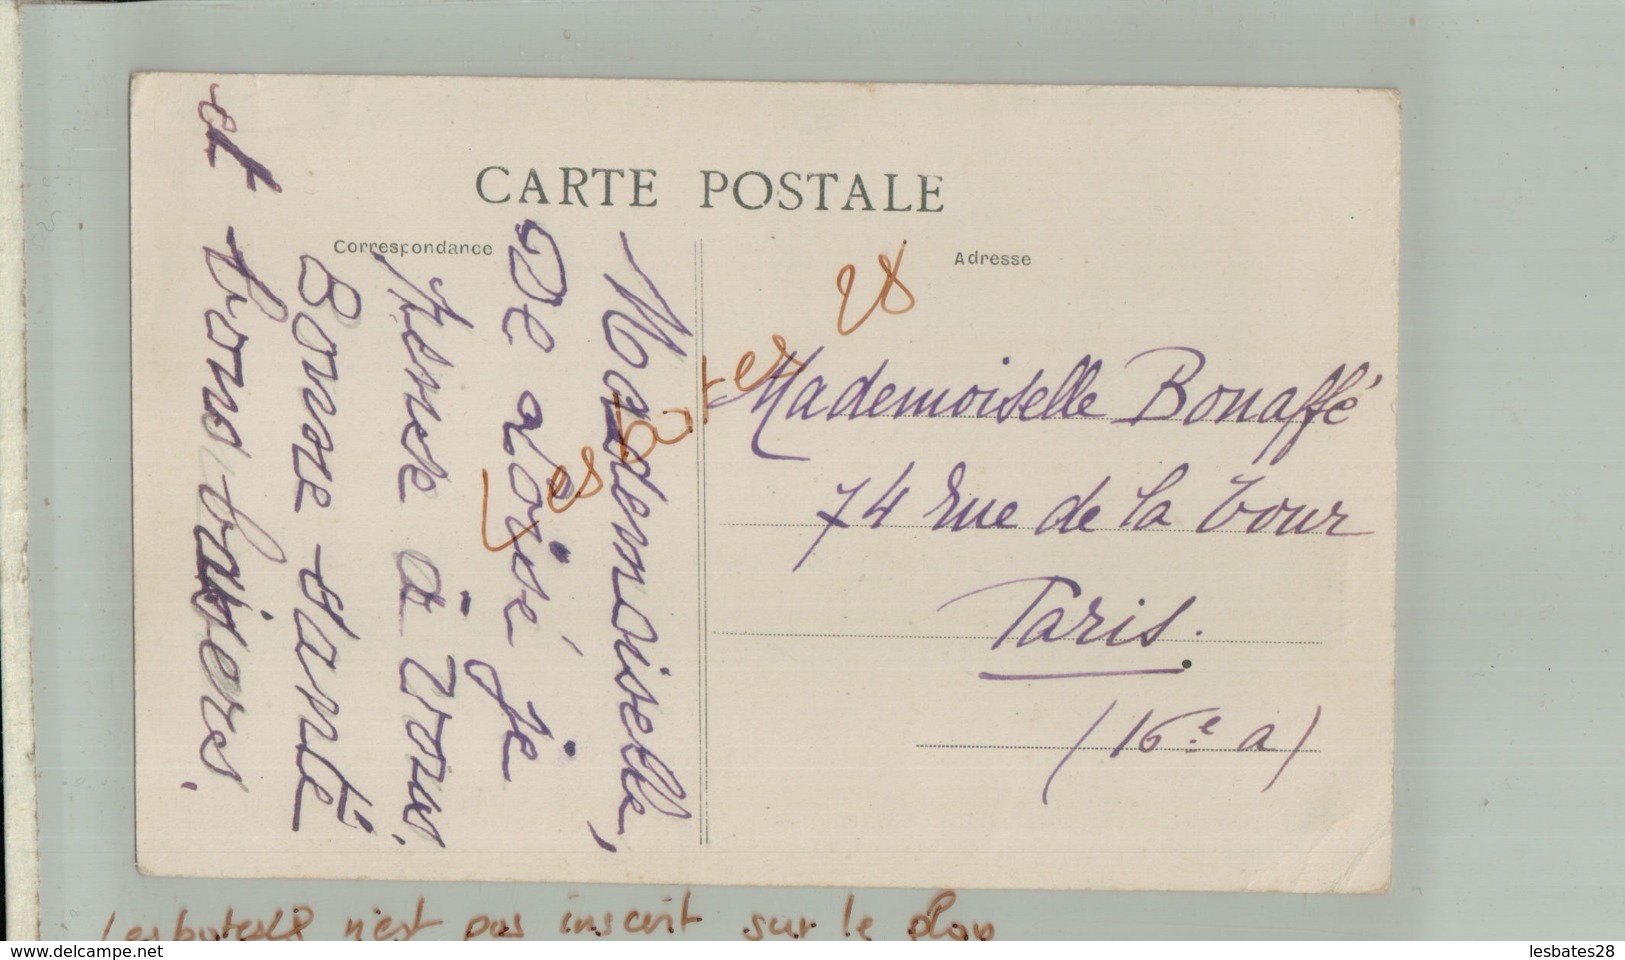 CARTE POSTALE
Correspondance
Adresse
Mademoiselle,
De Loisé je
Pense à vous,
Bonne santé
et bons baisers,
Mademoiselle Bonaffé
74 Rue de la Tour
Paris.
(16e a)
les bates 28
lesbates28 n'est pas inscrit sur le plan
lesbates28